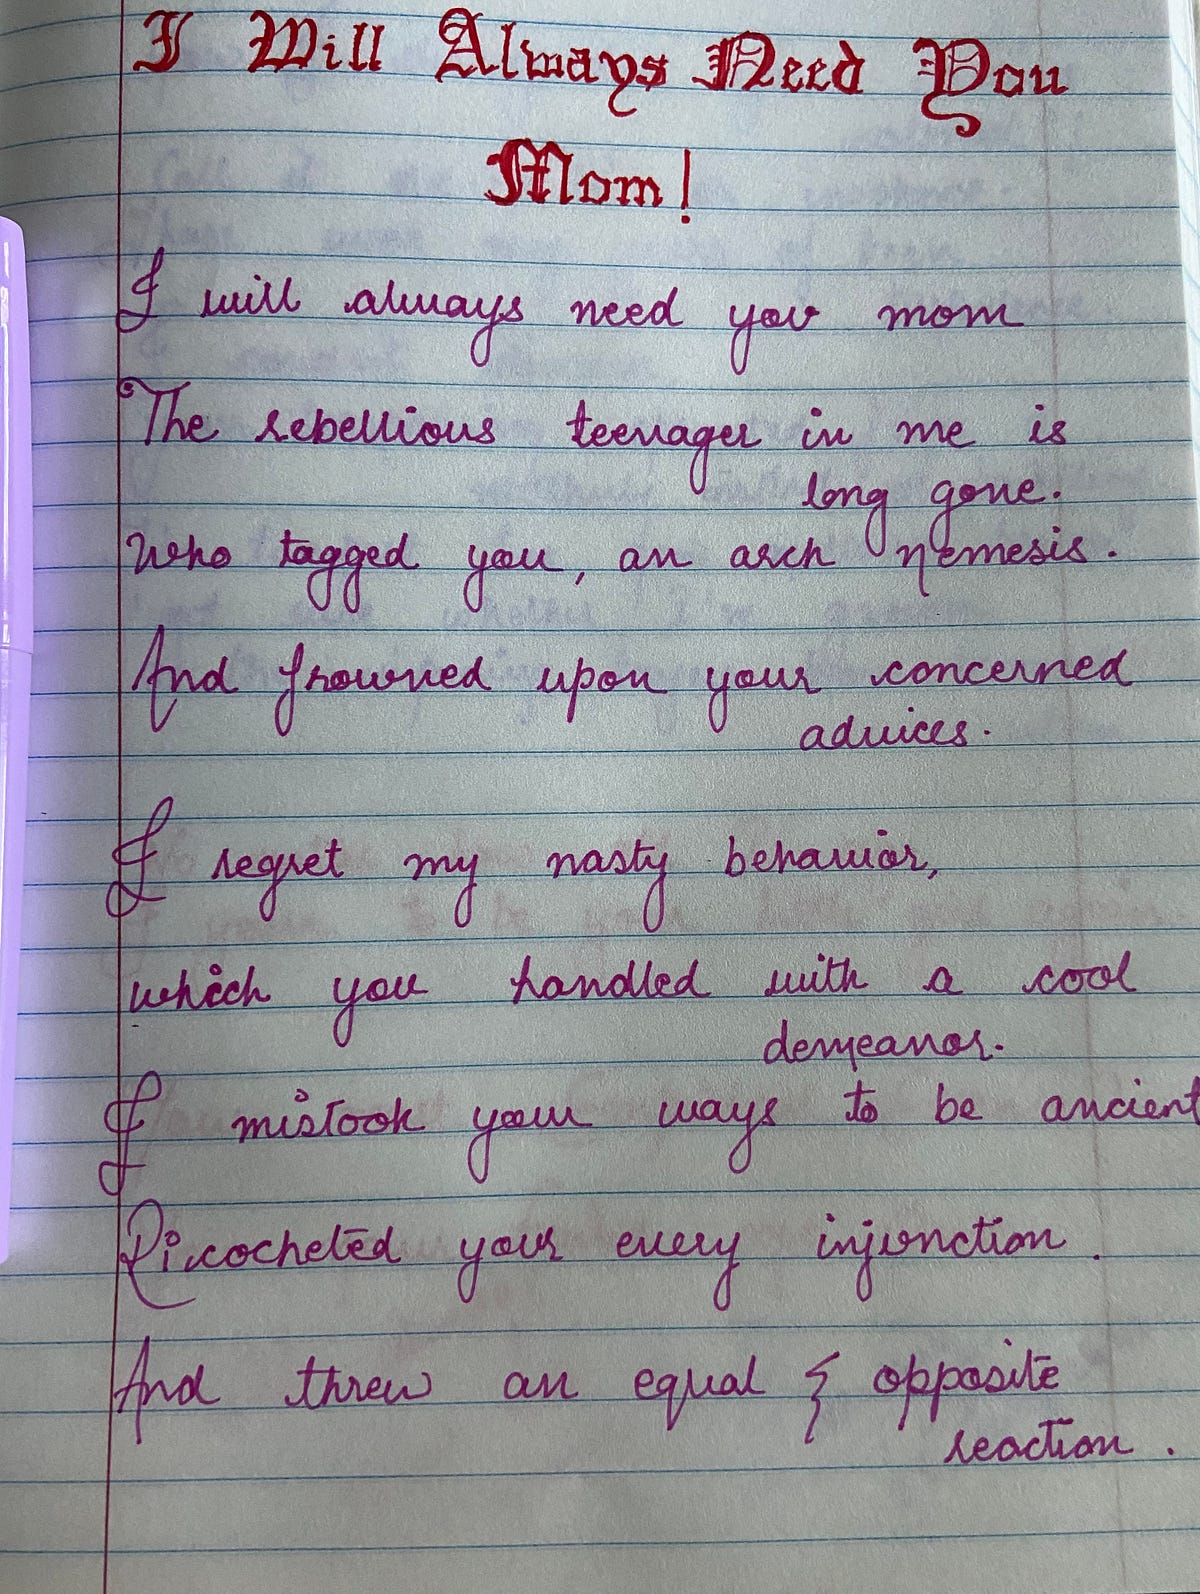 I Will Always Need You
Mom!
I will always need you mom
The rebellious teenager in me is
long gone.
Who tagged you, an arch nemesis.
And frowned upon your concerned
advices.
I regret my nasty behavior,
which you handled with a cool
demeanor.
I mistook your ways to be ancient
Ricocheted your every injunction.
And threw an equal & opposite
reaction.